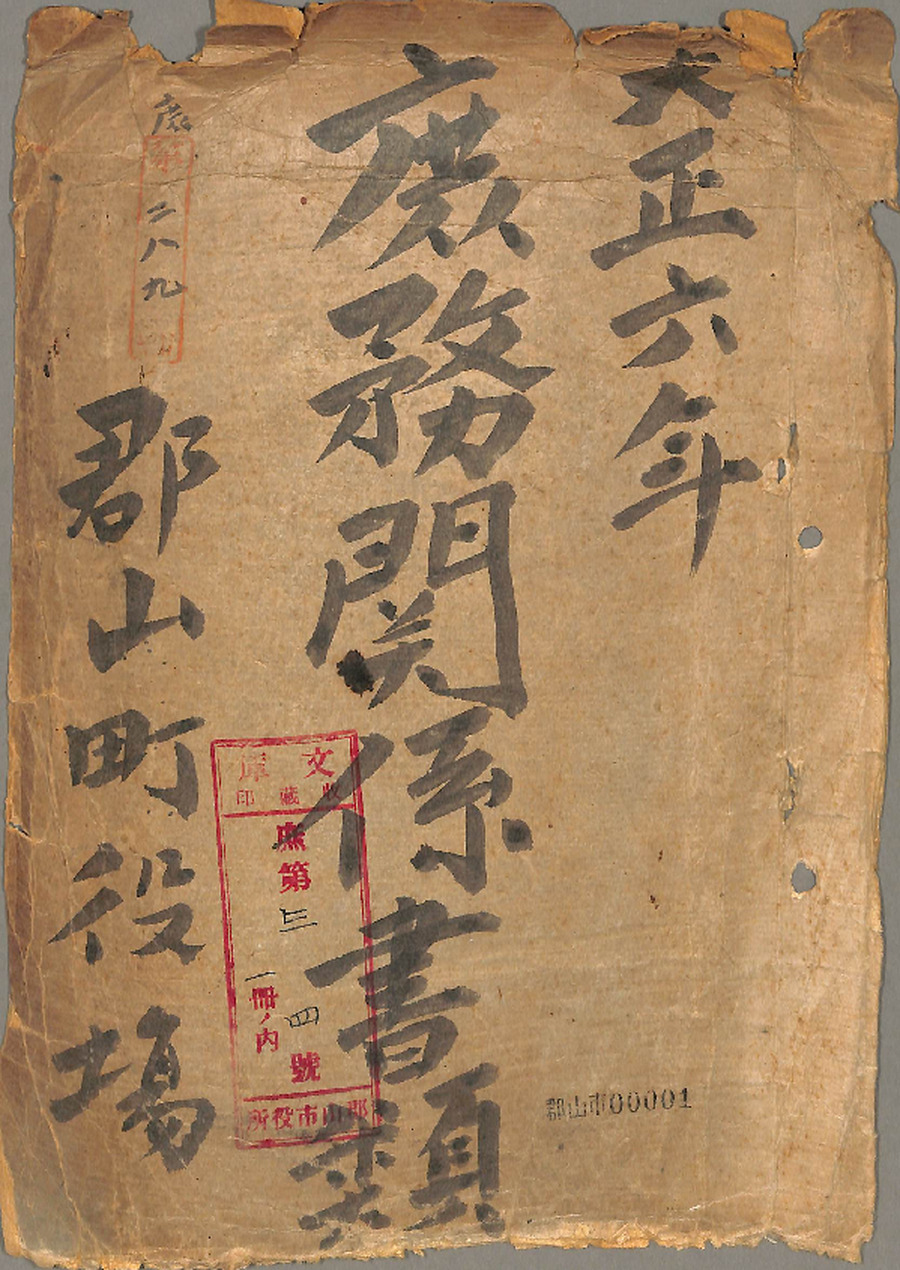 大正六年
庶務関係書類
庶第二八九号
郡山町役場
文庫
收藏印
庶第三四號
一冊ノ内
郡山市役所
郡山市00001